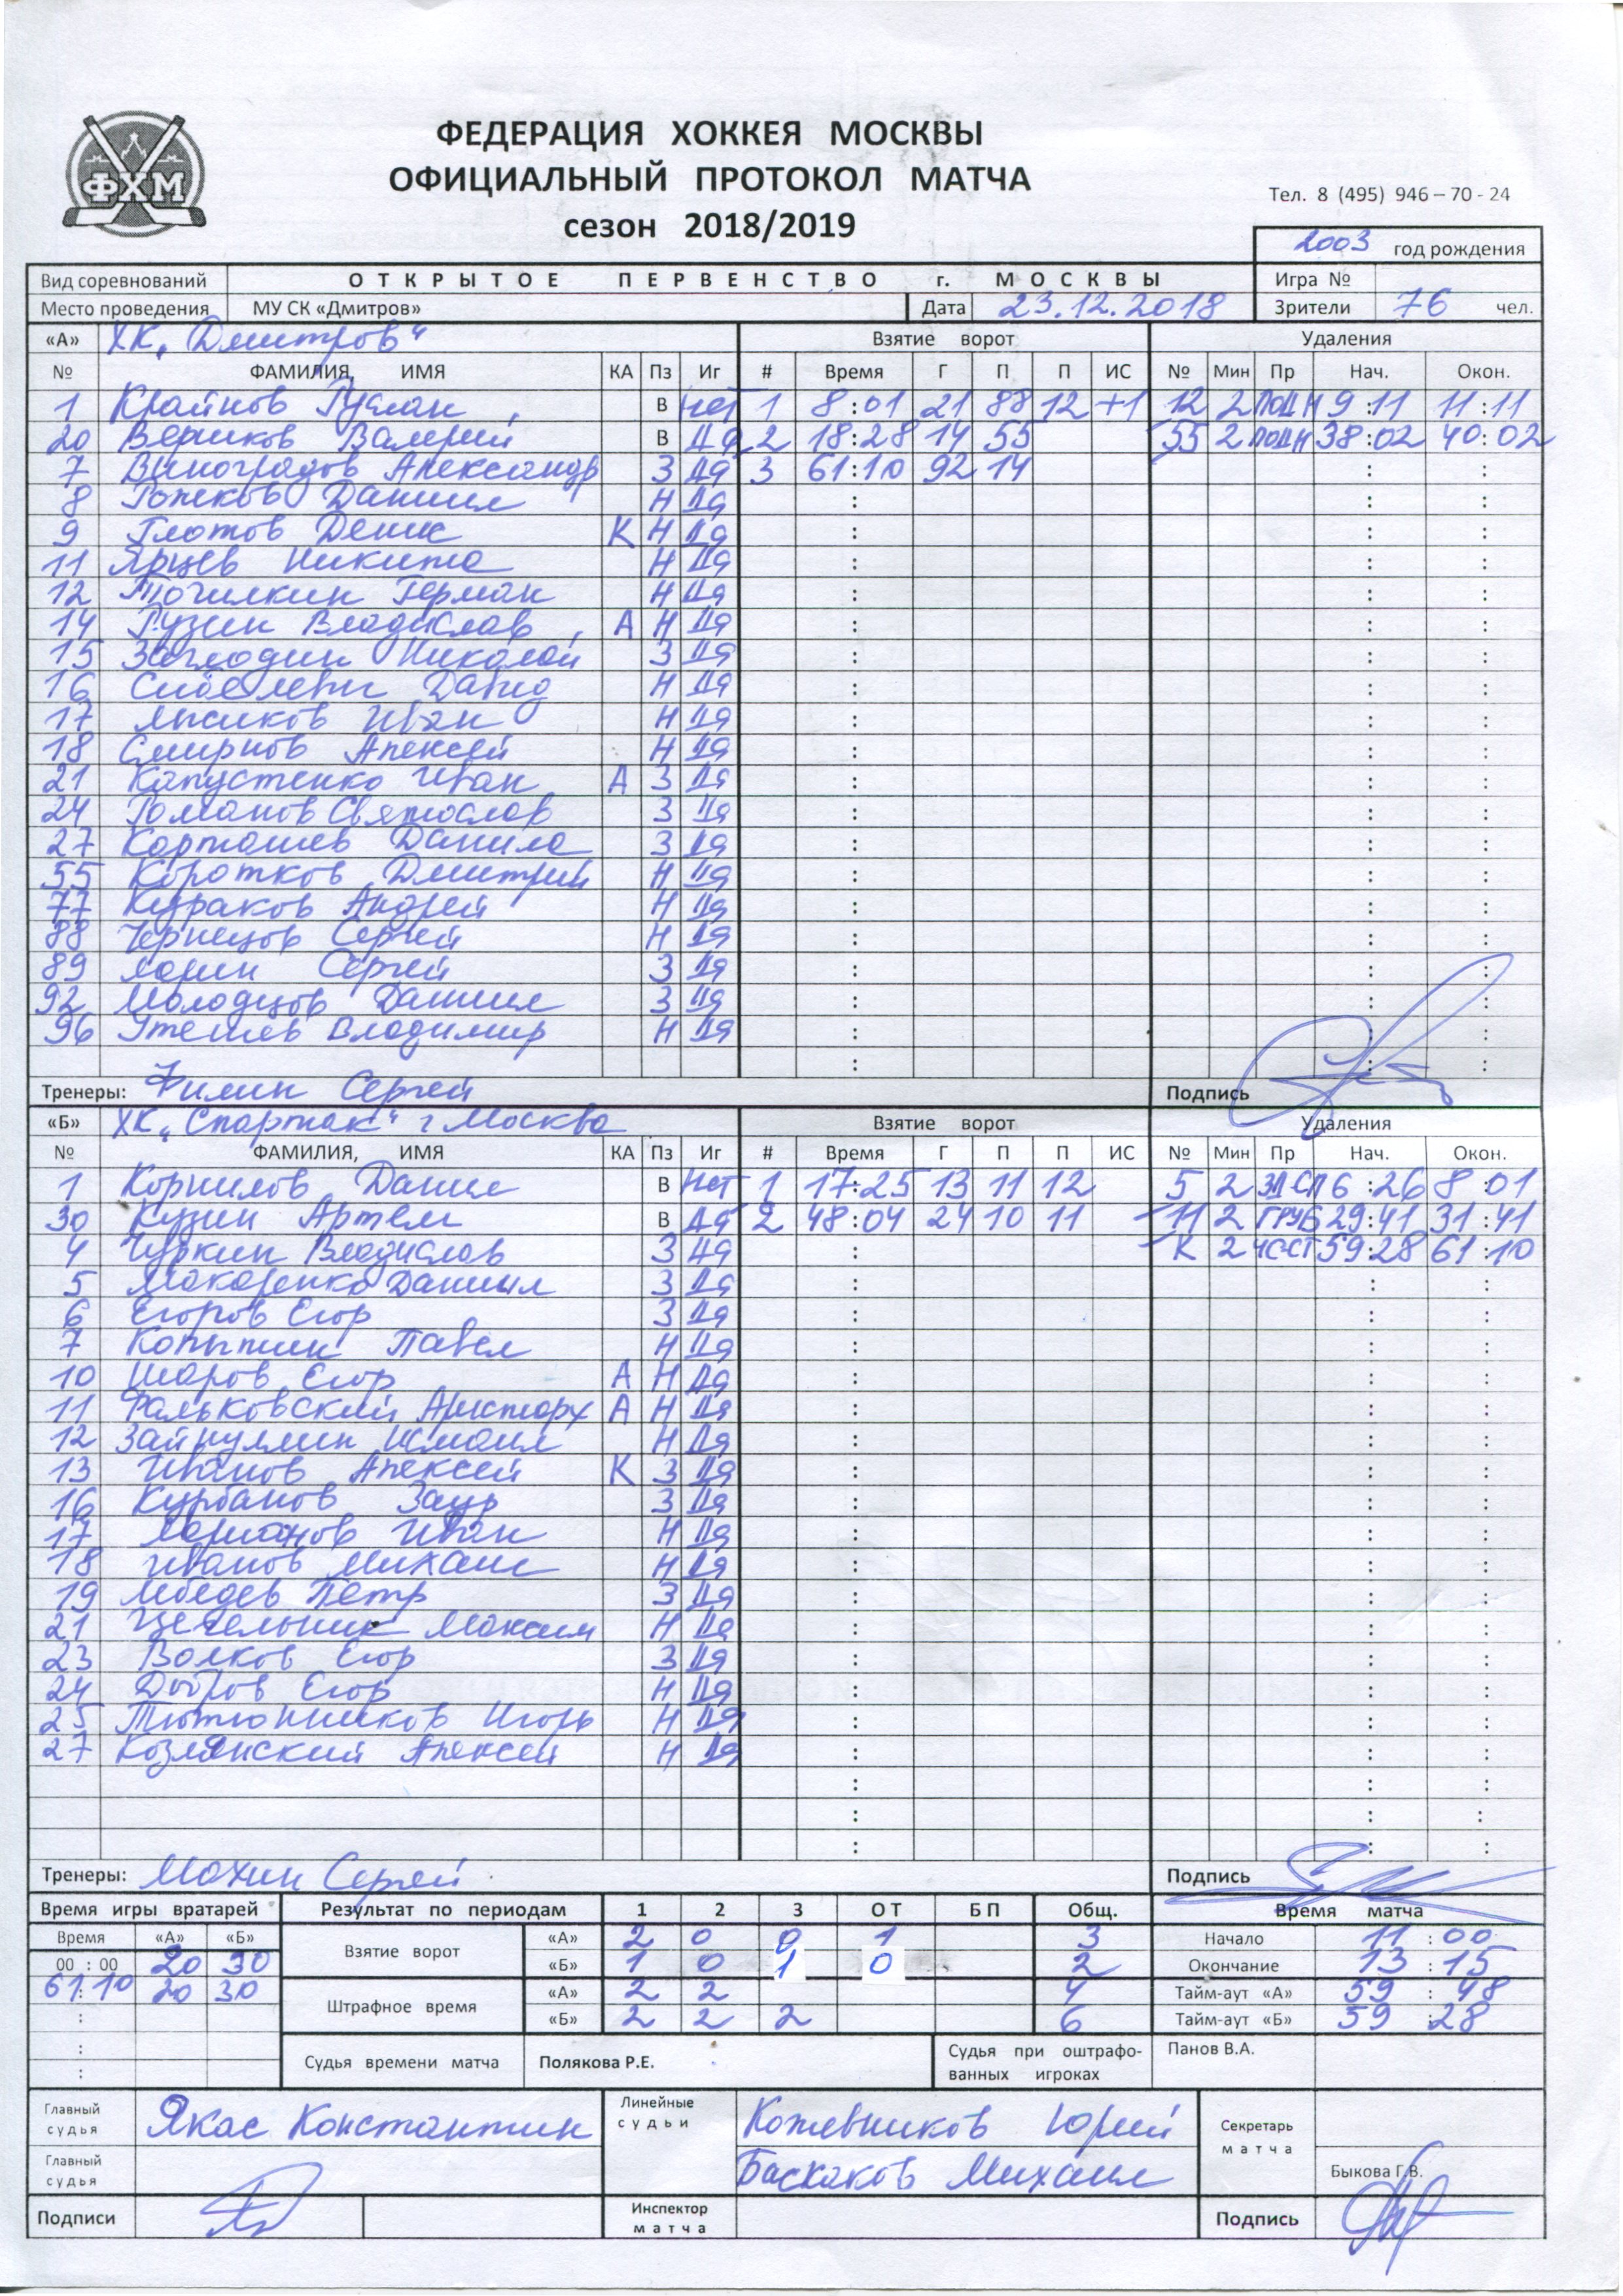 ФХМ
ФЕДЕРАЦИЯ ХОККЕЯ МОСКВЫ
ОФИЦИАЛЬНЫЙ ПРОТОКОЛ МАТЧА
сезон 2018/2019
Тел. 8 (495) 946 – 70 - 24
2003 год рождения
Вид соревнований ОТКРЫТОЕ ПЕРВЕНСТВО г. МОСКВЫ Игра №
Место проведения МУ СК «Дмитров» Дата 23.12.2018 Зрители 76 чел.
«А» ХК „Дмитров“ Взятие ворот Удаления
№ ФАМИЛИЯ, ИМЯ КА Пз Иг # Время Г П П ИС № Мин Пр Нач. Окон.
1 Крайнов Руслан В нет 1 8:01 21 88 12 +1 12 2 подн 9:11 11:11
20 Вершков Валерий В да 2 18:28 14 55 55 2 подн 38:02 40:02
7 Виноградов Александр З да 3 61:10 92 14 : :
8 Рожков Даниил Н да : : :
9 Глотов Денис К Н да : : :
11 Ярцев Никита Н да : : :
12 Точилкин Герман Н да : : :
14 Гузин Владислав А Н да : : :
15 Заглодин Николай З да : : :
16 Давид Н да : : :
17 Лысиков Иван Н да : : :
18 Смирнов Алексей Н да : : :
21 Капустенко Иван А З да : : :
24 Романов Святослав З да : : :
27 Карташев Данила З да : : :
55 Коротков Дмитрий Н да : : :
77 Кураков Андрей Н да : : :
88 Чернецов Сергей Н да : : :
89 Ларин Сергей З да : : :
92 Молодцов Даниил З да : : :
96 Утешев Владимир Н да : : :
: : :
Тренеры: Филин Сергей Подпись
«Б» ХК „Спартак“ г Москва Взятие ворот Удаления
№ ФАМИЛИЯ, ИМЯ КА Пз Иг # Время Г П П ИС № Мин Пр Нач. Окон.
1 Корнилов Данил В нет 1 17:25 13 11 12 5 2 6:26 8:01
30 Кузин Артем В да 2 48:04 24 10 11 11 2 груб 29:41 31:41
4 Чуркин Владислав З да : К 2 59:28 61:10
5 Макаренко Даниил З да : : :
6 Егоров Егор З да : : :
7 Копытин Павел Н да : : :
10 Шаров Егор А Н да : : :
11 Фальковский Аристарх А Н да : : :
12 Зайнуллин Исмаил Н да : : :
13 Иванов Алексей К З да : : :
16 Курбанов Заур З да : : :
17 Иван Н да : : :
18 Иванов Михаил Н да : : :
19 Лебедев Петр З да : : :
21 Цегельник Максим Н да : : :
23 Волков Егор З да : : :
24 Добров Егор Н да : : :
25 Тютюнников Игорь Н да : : :
27 Козлянский Алексей Н да : : :
: : :
: : :
: : :
Тренеры: Мохин Сергей Подпись
Время игры вратарей Результат по периодам 1 2 3 ОТ БП Общ. Время матча
Время «А» «Б» Взятие ворот «А» 2 0 0 1 3 Начало 11:00
00 : 00 20 30 «Б» 1 0 1 0 2 Окончание 13:15
61:10 20 30 Штрафное время «А» 2 2 4 Тайм-аут «А» 59:48
: «Б» 2 2 2 6 Тайм-аут «Б» 59:28
: Судья времени матча Полякова Р.Е. Судья при оштрафо- Панов В.А.
: ванных игроках
Главный судья Якас Константин Линейные судьи Кожевников Юрий Секретарь матча
Главный судья Баскаков Михаил Быкова Г.В.
Подписи Инспектор матча Подпись